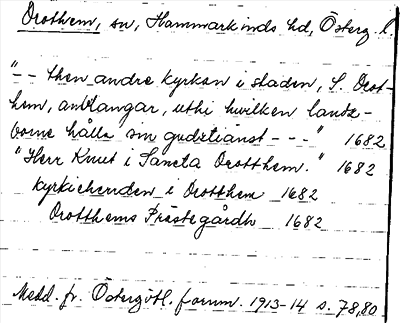 Drothem, sn, Hammarkinds hd, Österg. l.
"-- then andre kyrkan i staden, S. Drot-
hem, anblangar, uthi hwilken landz-
borne hålla sin gudztianst ---" 1682
"Herr Knut i Sancta Drotthem." 1682
kyrkieherden i Drotthem 1682
Drotthems Prästegårdh 1682
Medd. fr. Östergötl. fornm. 1913-14 s. 78,80